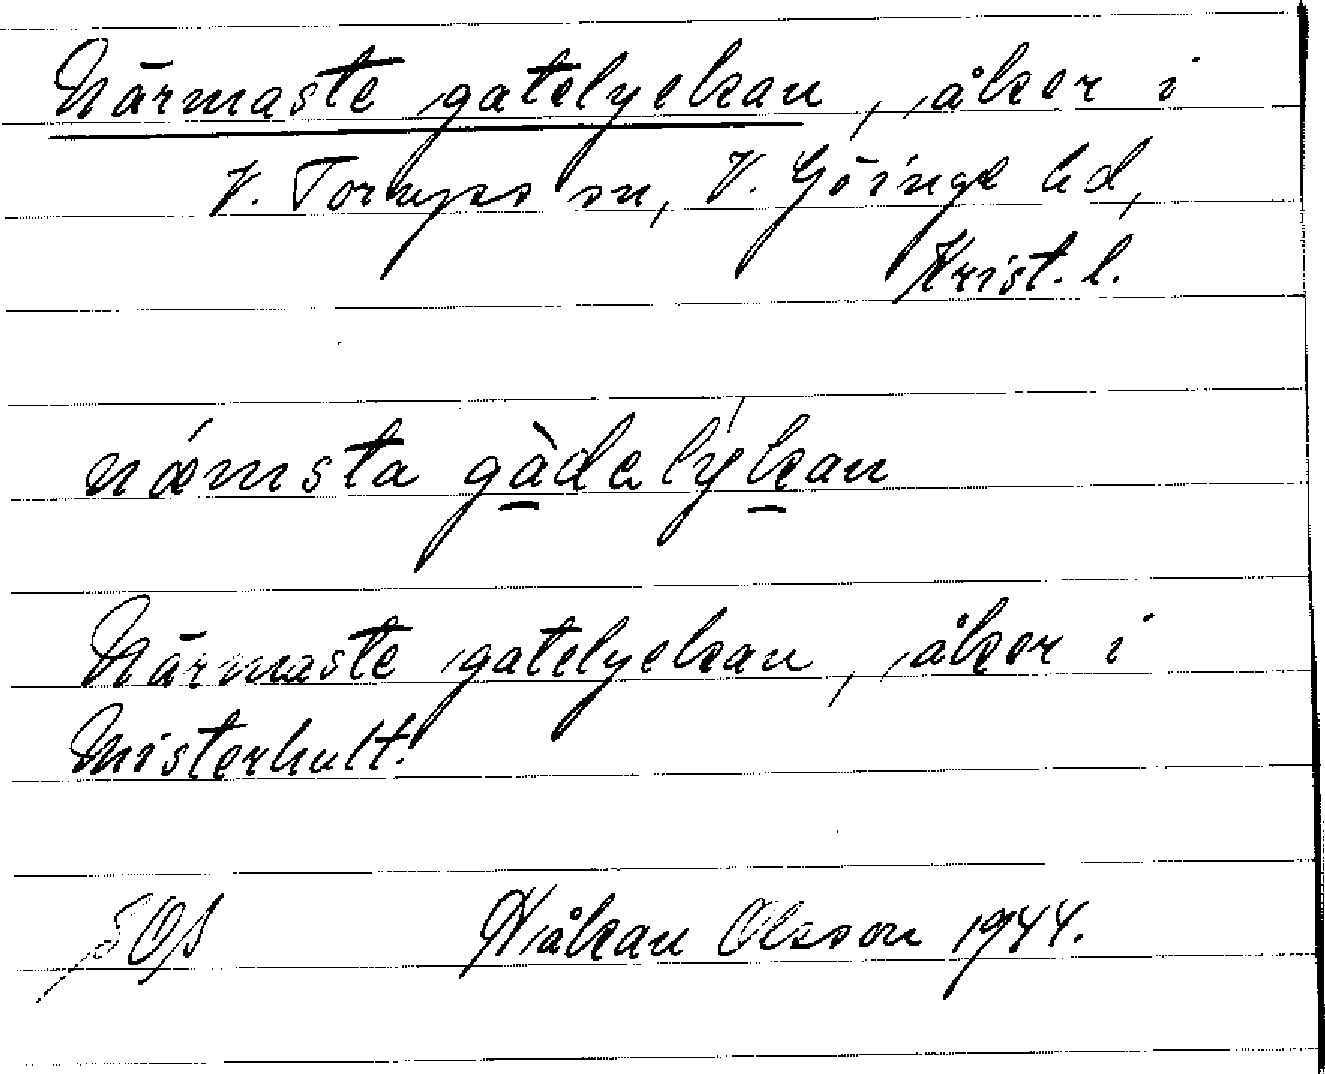 Närmaste gatelyckan, åker i
V. Torups sn, V. Göinge hd,
Krist. l.
nǽmsta gàdelýkan
Närmaste gatelyckan, åker i
Misterhult.
SOS Håkan Olsson 1944.